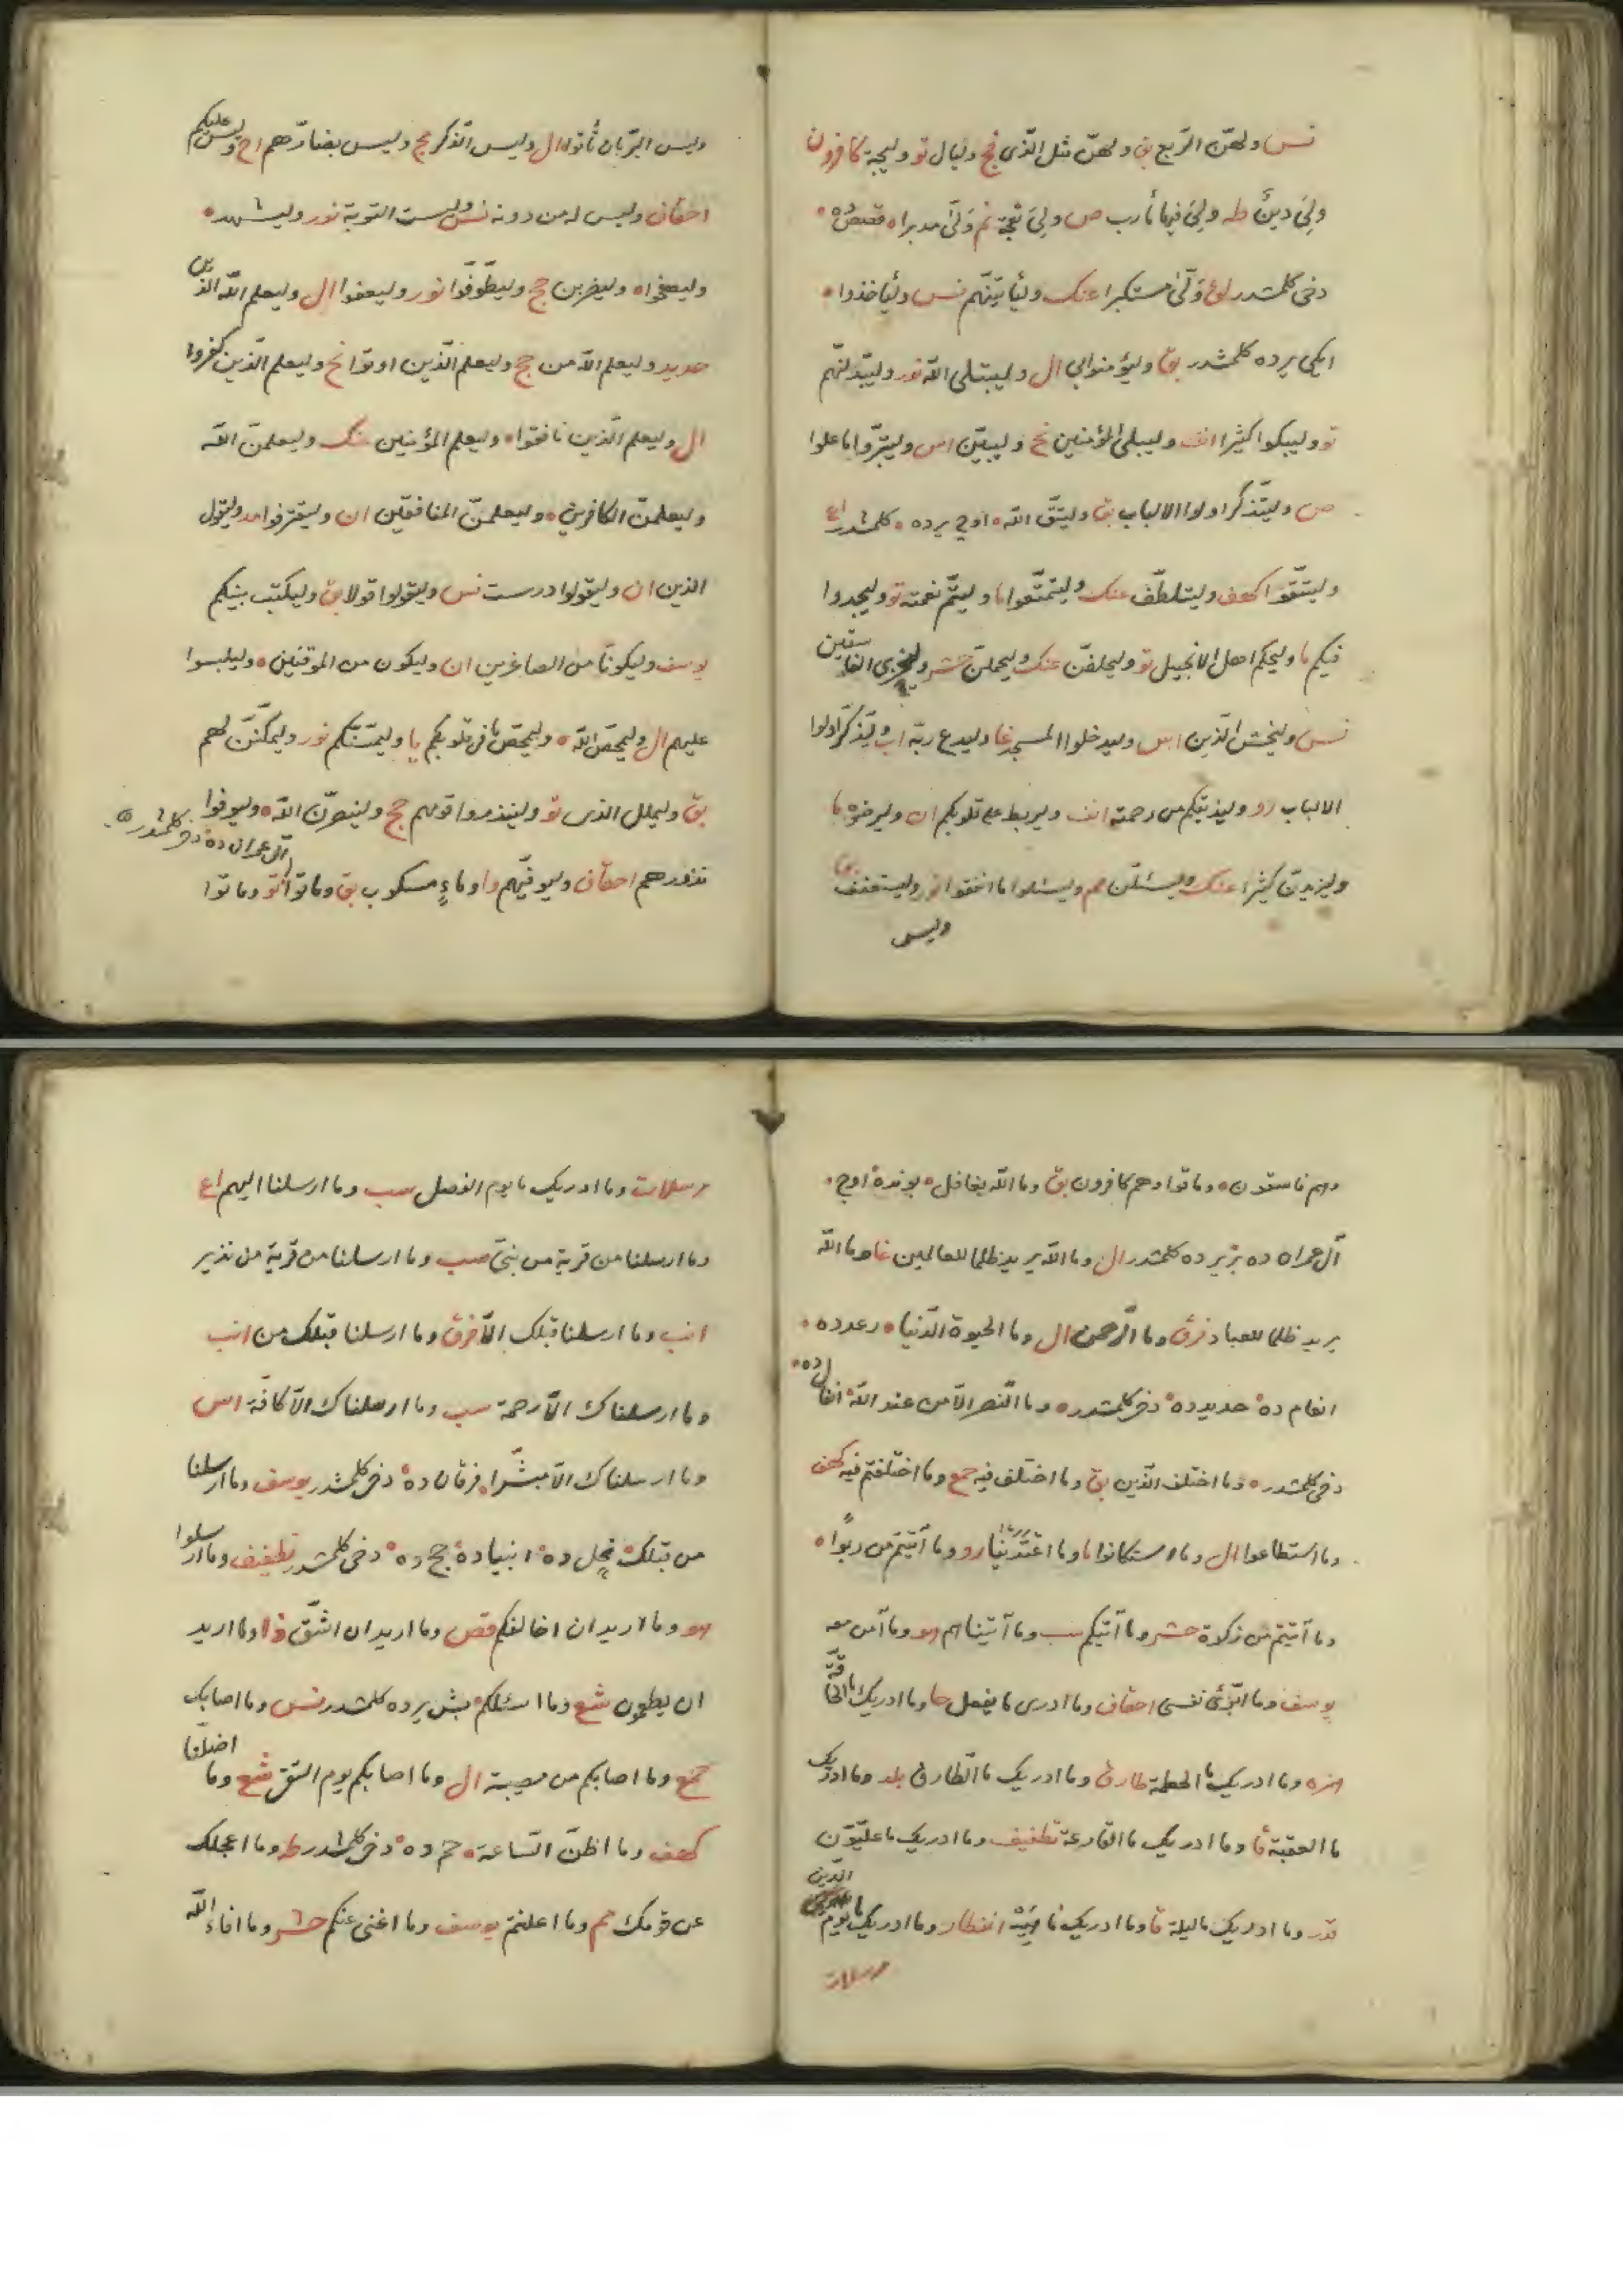 نس ولهن الربع بق ولهن مثل الذى فج وليال تو وليجة كافرون
ولى دين طه ولى فيها مأرب ص ولى نعجة نم ولى مدبرا ه قصص ده ه
دخى كلمشدر لق ولى مستكبرا عنك وليأتينهم نس وليأخذوا ه
ايكى يرده كلمشدر بق وليؤمنوا بى ال وليبتلى الله نور وليبدلنهم
تو وليبكوا كثيرا انف وليبلى المؤمنين نح وليبين اس وليتبروا ما علوا
ص وليتذكر اولوا الالباب بق وليتق الله ه اوج يرده ه كلمشدر اع
وليتقوا كهف وليتلطف عنك وليتمتعوا ما وليتم نعمته تو وليجدوا
فيكم ما وليحكم اهل الانجيل تو وليحلفن عنك وليحملن حشر وليخزى الفاسقين
نس وليخش الذين اس وليدخلوا المسجد غا وليدع ربه اب وليذكر اولوا
الالباب رو وليذيقكم من رحمته انف وليربط على قلوبكم ان وليرضوه ما
وليزيدن كثيرا عنك وليسئلن مم وليسئلوا ما انفقوا نور وليستعفف بق
وليس
وليس البر بان تأتوا ال وليس الذكر مج وليس بضارهم اح وليس عليكم
احقاف وليس له من دونه نس وليست التوبة نور وليشهد ه
وليصفحوا ه وليضربن حج وليطوفوا نور وليعفوا ال وليعلم الله الذين
حديد وليعلم الله من حج وليعلم الذين اوتوا نح وليعلم الذين كفروا
ال وليعلم الذين نافقوا ه وليعلم المؤمنين عنك وليعلمن الله
وليعلمن الكافرين ه وليعلمن المنافقين ان وليقترفوا مد وليقول
الذين ان وليقولوا درست نس وليقولوا قولا بق وليكتب بينكم
يوسف وليكونا من الصاغرين ان وليكون من الموقنين ه وليلبسوا
عليهم ال وليمحص الله ه وليمحص ما فى قلوبكم يا وليمسنكم نور وليمكنن لهم
بق وليملل الذى تو ولينذروا قومهم حج ولينصرن الله ه وليوفوا
نذورهم احقاف وليوفيهم وا وماء مسكوب بق وماتوا تو وماتوا
آل عمران ده دخى كلمشدر ه
وهم فاسقون ه وماتوا وهم كافرون بق وما الله بغافل ه بونده اوج ه
آل عمران ده بر يرده كلمشدر ال وما الله يريد ظلما للعالمين غا وما الله
يريد ظلما للعباد فرق وما الرحمن ال وما الحيوة الدنيا ه رعد ده ه
انعام ده حديد ده دخى كلمشدر ه وما النصر الا من عند الله انفال ده ه
دخى كلمشدر ه وما اختلف الذين بق وما اختلف فيه جمع وما اختلفتم فيه كهف
وما استطاعوا ال وما استكانوا ما وما اعتدينا رو وما آتيتم من ربوا ه
وما آتيتم من زكوة حشر وما آتيكم سب وما آتيناهم هو وما آمن معه
يوسف وما ابرئ نفسى احقاف وما ادرى ما يفعل حا وما ادريك ما الحاقة
همزه وما ادريك ما الحطمة طارق وما ادريك ما الطارق بلد وما ادريك
ما العقبة قا وما ادريك ما القارعة تطفيف وما ادريك ما عليون
قدر وما ادريك ما ليلة قا وما ادريك ما هيه انفطار وما ادريك ما يوم الدين
مرسلات
مرسلات وما ادريك ما يوم الفصل سب وما ارسلنا اليهم اع
وما ارسلنا من قرية من نبى سب وما ارسلنا من قرية من نذير
انب وما ارسلنا قبلك الا فرق وما ارسلنا قبلك من انب
وما ارسلناك الا رحمة سب وما ارسلناك الا كافة اس
وما ارسلناك الا مبشرا ه فرقان ده دخى كلمشدر يوسف وما ارسلنا
من قبلك نحل ده انبيا ده حج ده دخى كلمشدر تطفيف وما ارسلوا
هو وما اريد ان اخالفكم قص وما اريد ان اشق ذا وما اريد
ان يطعمون شع وما اسئلكم بش يرده كلمشدر نس وما اصابك
جمع وما اصابكم من مصيبة ال وما اصابكم يوم التقى شع وما اضلنا
كهف وما اظن الساعة ه حم ده دخى كلمشدر طه وما اعجلك
عن قومك مم وما اعلنتم يوسف وما اغنى عنكم حشر وما افاء الله